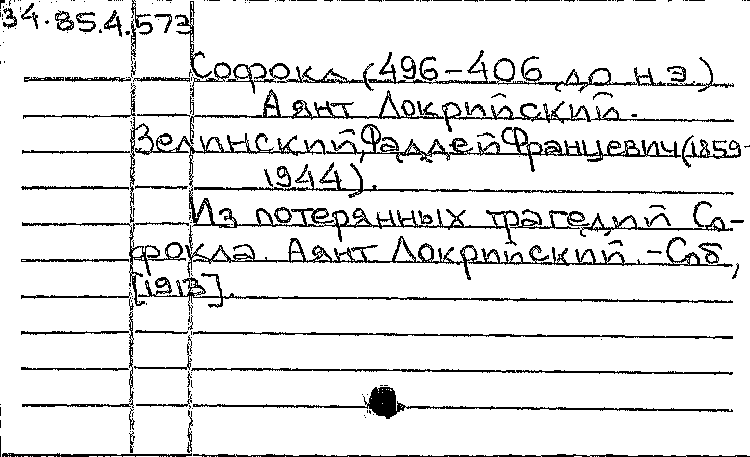 34.85.4.573
Софокл (496-406 до н.э.)
Аянт Локрийский.
Зелинский, Фаддей Францевич (1859-
1944).
Из потерянных трагедий Со-
фокла. Аянт Локрийский. - Спб,
[1913].